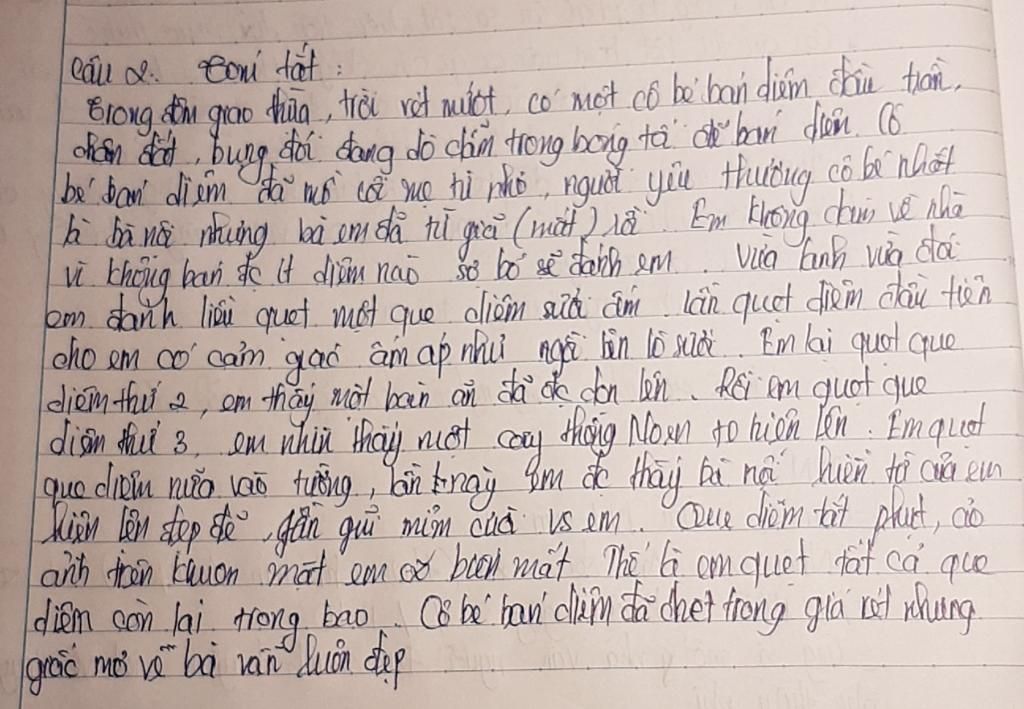 Câu 2. Tóm tắt:
Trong đêm giao thừa, trời rét mướt, có một cô bé bán diêm đầu trần,
chân đất, bụng đói đang dò dẫm trong bóng tối để bán diêm. Cô
bé bán diêm đã mồ côi mẹ từ nhỏ, người yêu thương cô bé nhất
là bà nội nhưng bà em đã từ giã (mất) rồi. Em không dám về nhà
vì không bán đc ít diêm nào sợ bố sẽ đánh em. Vừa lạnh vừa đói
em đánh liều quẹt một que diêm sưởi ấm lần quẹt diêm đầu tiên
cho em có cảm giác ấm áp như ngồi bên lò sưởi. Em lại quẹt que
diêm thứ 2, em thấy một bàn ăn đã đc dọn lên. Rồi em quẹt que
diêm thứ 3, em nhìn thấy một cây thông Noen to hiện lên. Em quẹt
que diêm nữa vào tường, lần này em đc thấy bà nội hiền từ của em
hiện lên đẹp đẽ, gần gũi mỉm cười vs em. Que diêm tắt phụt, ảo
ảnh trên khuôn mặt em biến mất. Thế là em quẹt tất cả que
diêm còn lại trong bao. Cô bé bán diêm đã chết trong giá rét nhưng
giấc mơ về bà vẫn luôn đẹp